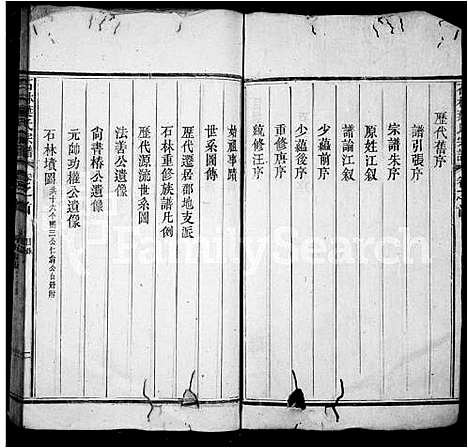 歷代舊序
譜引張序
宗譜朱序
原姓江叙
譜論江叙
少蘊前序
少蘊後序
重修唐序
統修汪序
始遷事蹟
世系圖
歷代遷居郡地支派
石林重修族譜凡例
歷代源流世系圖
法善公遺像
尚書椿公遺像
元帥功權公遺像
石林墳圖
FamilySearch